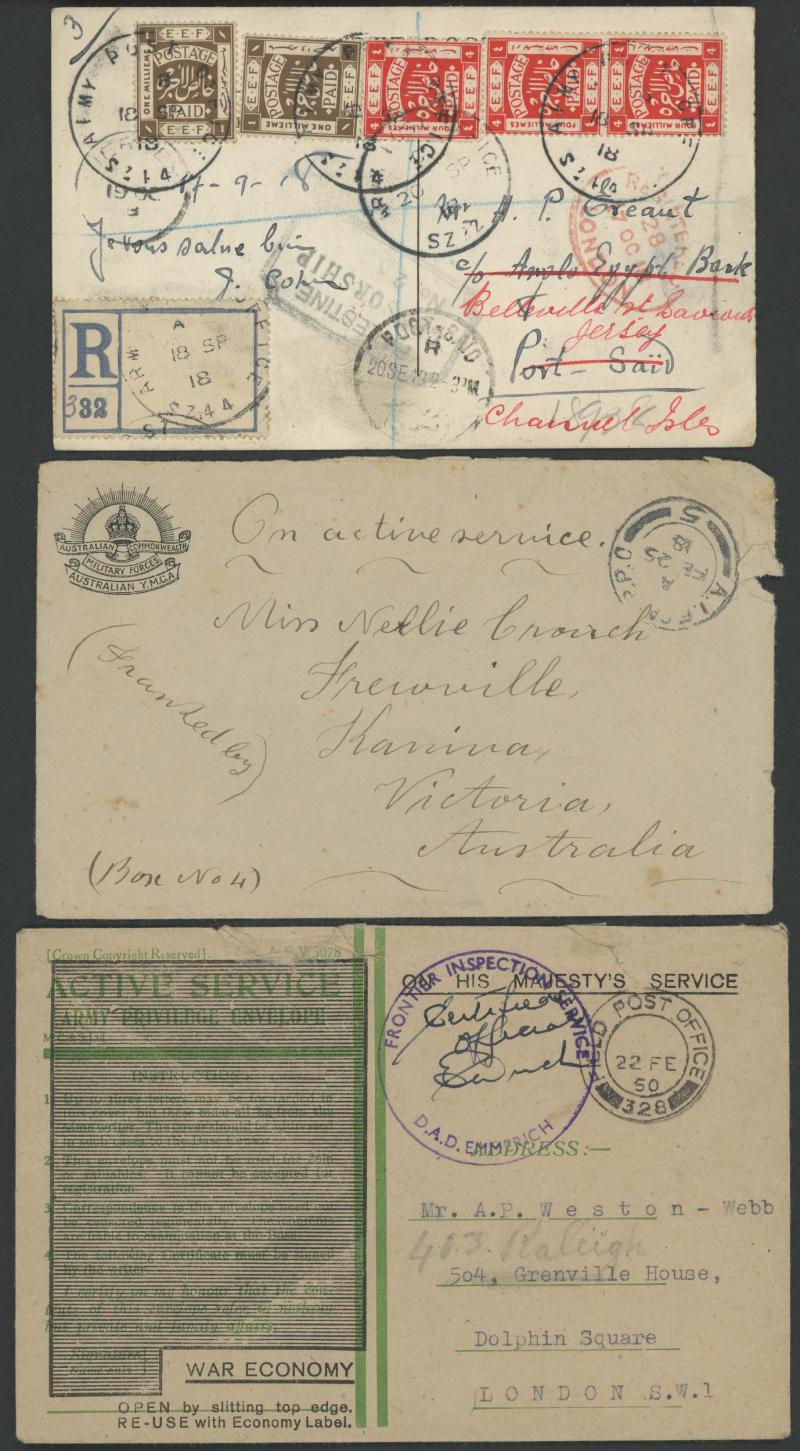 3
E.E.F
POSTAGE
PAID
ONE MILLIEME
خالص الاجره
E.E.F
E.E.F
POSTAGE
PAID
ONE MILLIEME
E.E.F
POSTAGE
PAID
FOUR MILLIEMES
4
E.E.F
POSTAGE
PAID
FOUR MILLIEMES
4
E.E.F
POSTAGE
PAID
FOUR MILLIEMES
4
ARMY POST OFFICE
18 SP
18
SZ 44
17-9-18
A. P. Creaut
c/o Anglo Egypt. Bank
Belleville St Saviours
Jersey
Port-Saïd
Channel Isles
PALESTINE
CENSORSHIP
REGISTERED
28 OC
LONDON
PORT-SAID
R
20 SE 18 2-3 PM
R
332
ARMY POST OFFICE
A
18 SP
18
SZ 44
AUSTRALIAN COMMONWEALTH
MILITARY FORCES
AUSTRALIAN Y.M.C.A
On active service.
5
A
FE 25
18
Miss Nellie Crouch
Frewville,
(Franked by)
Kaniva,
Victoria,
Australia
(Box No 4)
[Crown Copyright Reserved].
A.F.W3078
ACTIVE SERVICE
ARMY PRIVILEGE ENVELOPE
INSTRUCTIONS
1. Up to three letters may be forwarded in
this cover, but these must all be from the
same writer. The cover should be addressed
in such cases to the Base Censor.
2. This envelope must not be used for coin
or valuables. It cannot be accepted for
registration.
3. Correspondence in this envelope need not
be censored regimentally. The contents
are liable to examination at the Base.
4. The following Certificate must be signed
by the writer:
I certify on my honour that the con-
tents of this envelope refer to nothing
but private and family affairs.
WAR ECONOMY
OPEN by slitting top edge.
RE-USE with Economy Label.
ON HIS MAJESTY'S SERVICE
FRONTIER INSPECTION SERVICE
D.A.D. EMMERICH
Certified
Official
FIELD POST OFFICE
22 FE
50
328
ADDRESS:—
Mr. A.P. Weston - Webb
403 Raleigh
504, Grenville House,
Dolphin Square
LONDON S.W.1